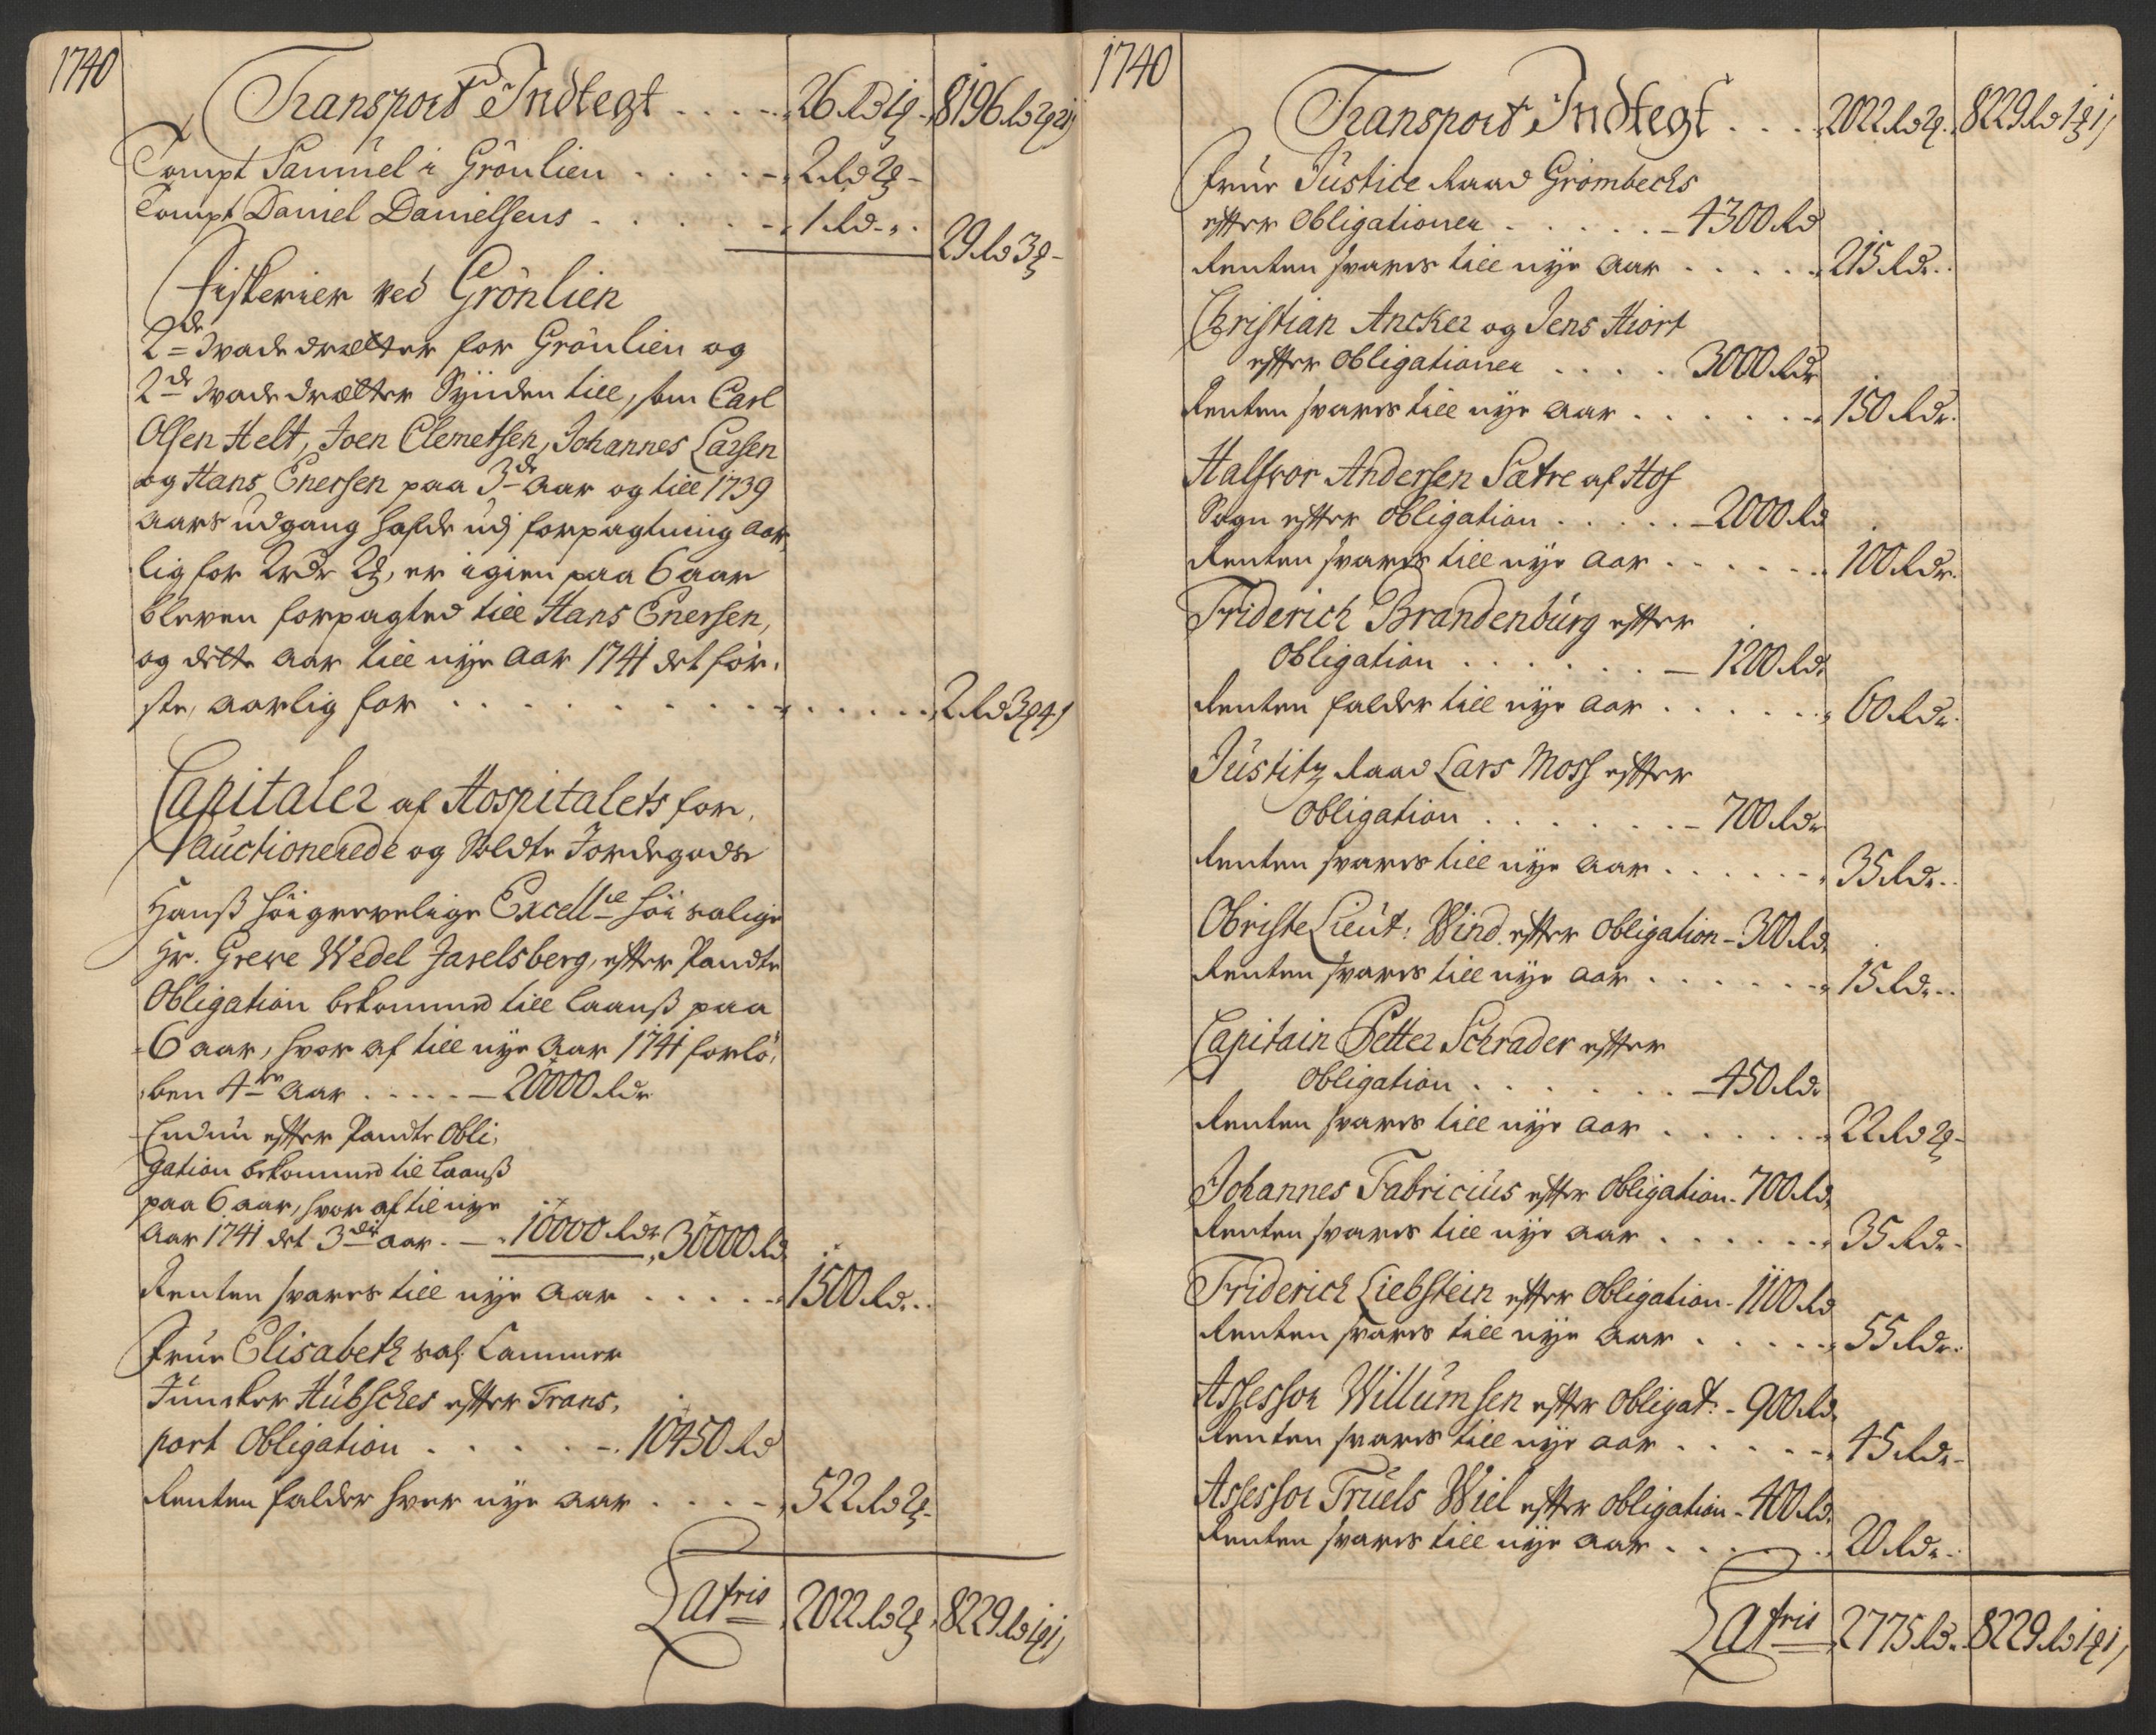 1740
Transport Indtegt . . . . 26 Rd 1 ℥ - 8196 Rd 2 ℥ 21 ß
Tompt Samuel i Grönlien . . . . . 2 Rd 2 ℥ -
Tompt Daniel Danielsens . . . . . 1 Rd - „ -
29 Rd 3 ℥ -
Fiskerier ved Grönlien
2de Wade drætter for Grönlien og
2de Wade drætter Synden till, som Carl
Olsen Helt, Joen Clemetsen, Johannes Larsen
og Hans Enersen paa 3de Aar og till 1739
Aars udgang hafde udj forpagtning aar,
lig for 2 rdr 2 ℥, er igien paa 6 aar
bleven forpagted till Hans Enersen,
og dette Aar till nye Aar 1741 detför,
ste, aarlig for . . . . . . . . . . 2 Rd 3 ℥ 4 ß
Capitaler af Hospitalets for,
auctionerede og Soldte Jordegods
Hanß höigrevelige Excellce höi salige
Hr. Greve Wedel Jarelsberg, efter Pandte
Obligation bekommed till laanß paa
6 aar, hvor af till nye Aar 1741 forlö,
ben 4re Aar . . . . . 20000 Rdr
Endnu efter Pandte Obli,
gation bekommed til laanß
paa 6 aar, hvor af til nye
Aar 1741 det 3die aar . - 10000 Rdr 30000 Rd
Renten svares till nye Aar . . . . . 1500 Rd . .
Frue Elisabeth sal. Cammer
Juncker Hübsches efter Trans,
port Obligation . . . . . 10450 Rd
Renten falder hver nye Aar . . . . 522 Rd 2 ℥ -
Latris 2022 Rd 2 ℥ 8229 Rd 1 ℥ 1 ß
1740
Transport Indtegt . . . 2022 Rd 2 ℥ . 8229 Rd 1 ℥ 1 ß
Frue Justice Raad Grömbechs
efter Obligationen . . . . . . 4300 Rd
Renten svares till nye Aar . . . . . 215 Rdr . .
Christian Ancker og Jens Hiort
efter Obligationen . . . . 3000 Rdr
Renten svares till nye Aar . . . . . . 150 Rdr .
Halfvor Andersen Sætre af Hof
Sogn efter Obligation . . . . . 2000 Rd
Renten svares till nye Aar . . . . . . 100 Rdr .
Friderich Brandenburg efter
Obligation . . . . . . . 1200 Rdr
Renten falder till nye Aar . . . . . . 60 Rdr .
Justitz Raad Lars Moss efter
Obligation . . . . . . . 700 Rdr
Renten svares till nye Aar . . . . . . 35 Rdr . .
Obriste Lieut: Wind efter Obligation - 300 Rd
Renten svares till nye Aar . . . . . . 15 Rdr . .
Capitain Petter Schrader efter
Obligation . . . . . . . 450 Rdr
Renten svares till nye Aar . . . . . . 22 Rd 2 ℥ -
Johannes Fabricius efter Obligation - 700 Rd
Renten svares till nye Aar . . . . . . 35 Rdr -
Friderich Liebstein efter Obligation - 1100 Rd
Renten svares till nye Aar . . . . . 55 Rdr .
Assessor Willumsen efter Obligat: - 900 Rd
Renten svares till nye Aar . . . . . 45 Rdr -
Assessor Truels Wiel efter Obligation - 400 Rd
Renten svares till nye Aar . . . . . 20 Rdr .
Latris 2775 Rd . 8229 Rd 1 ℥ 1 ß